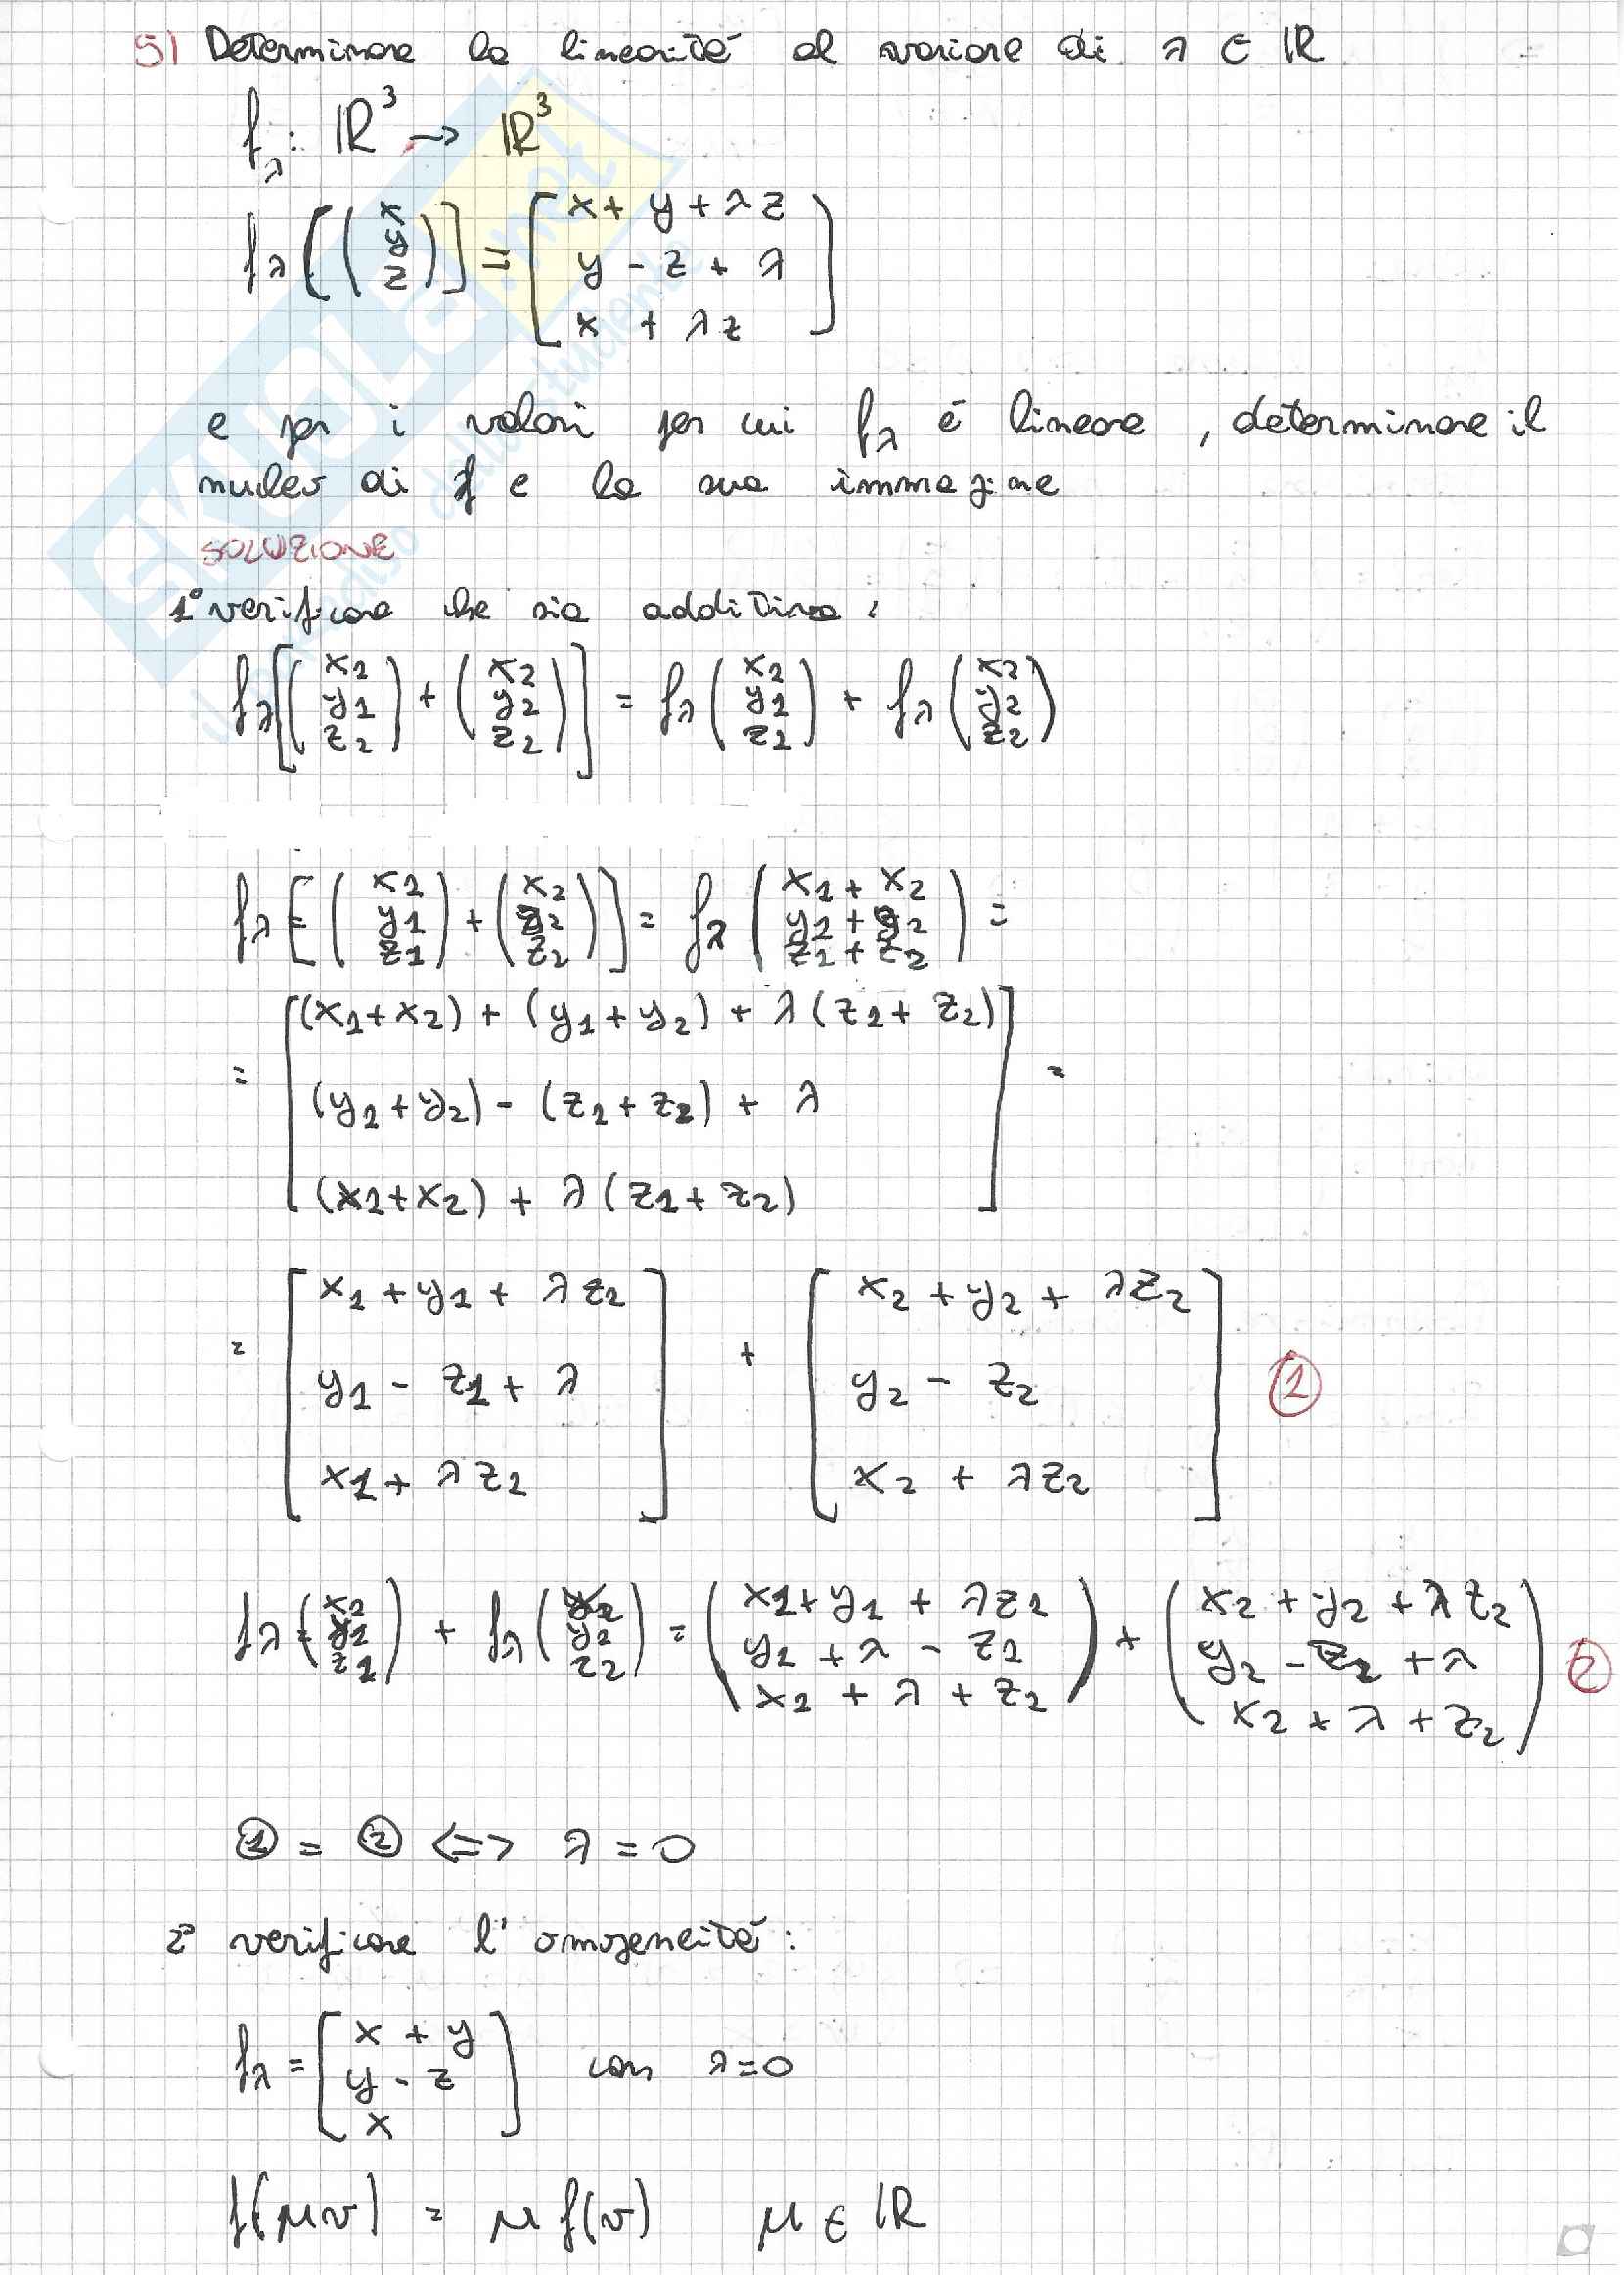 5) Determinare la linearité al variare di λ ∈ ℝ
f_λ : ℝ³ → ℝ³
f_λ [(x y z)] = [x + y + λz
y - z + λ
x + λz]
e per i valori per cui f_λ é lineare, determinare il
nucleo di f e la sua immagine
SOLUZIONE
1° verificare che sia additiva:
f_λ [(x₂ y₁ z₂) + (x₂ y₂ z₂)] = f_λ (x₂ y₁ z₁) + f_λ (x₂ y₂ z₂)
f_λ [(x₂ y₁ z₁) + (x₂ y₂ z₂)] = f_λ (x₁ + x₂ y₂ + y₂ z₂ + z₂) =
= [(x₁ + x₂) + (y₁ + y₂) + λ(z₁ + z₂)
(y₂ + y₂) - (z₂ + z₂) + λ
(x₁ + x₂) + λ(z₁ + z₂)] =
= [x₁ + y₁ + λz₂
y₁ - z₁ + λ
x₁ + λz₂] + [x₂ + y₂ + λz₂
y₂ - z₂
x₂ + λz₂] ①
f_λ (x₂ y₂ z₁) + f_λ (x₂ y₂ z₂) = (x₁ + y₁ + λz₂
y₂ + λ - z₂
x₂ + λ + z₂) + (x₂ + y₂ + λz₂
y₂ - z₂ + λ
x₂ + λ + z₂) ②
① = ② ⟺ λ = 0
2° verificare l' omogeneité:
f_λ = [x + y
y - z
x] con λ = 0
f(μv) = μ f(v) μ ∈ ℝ